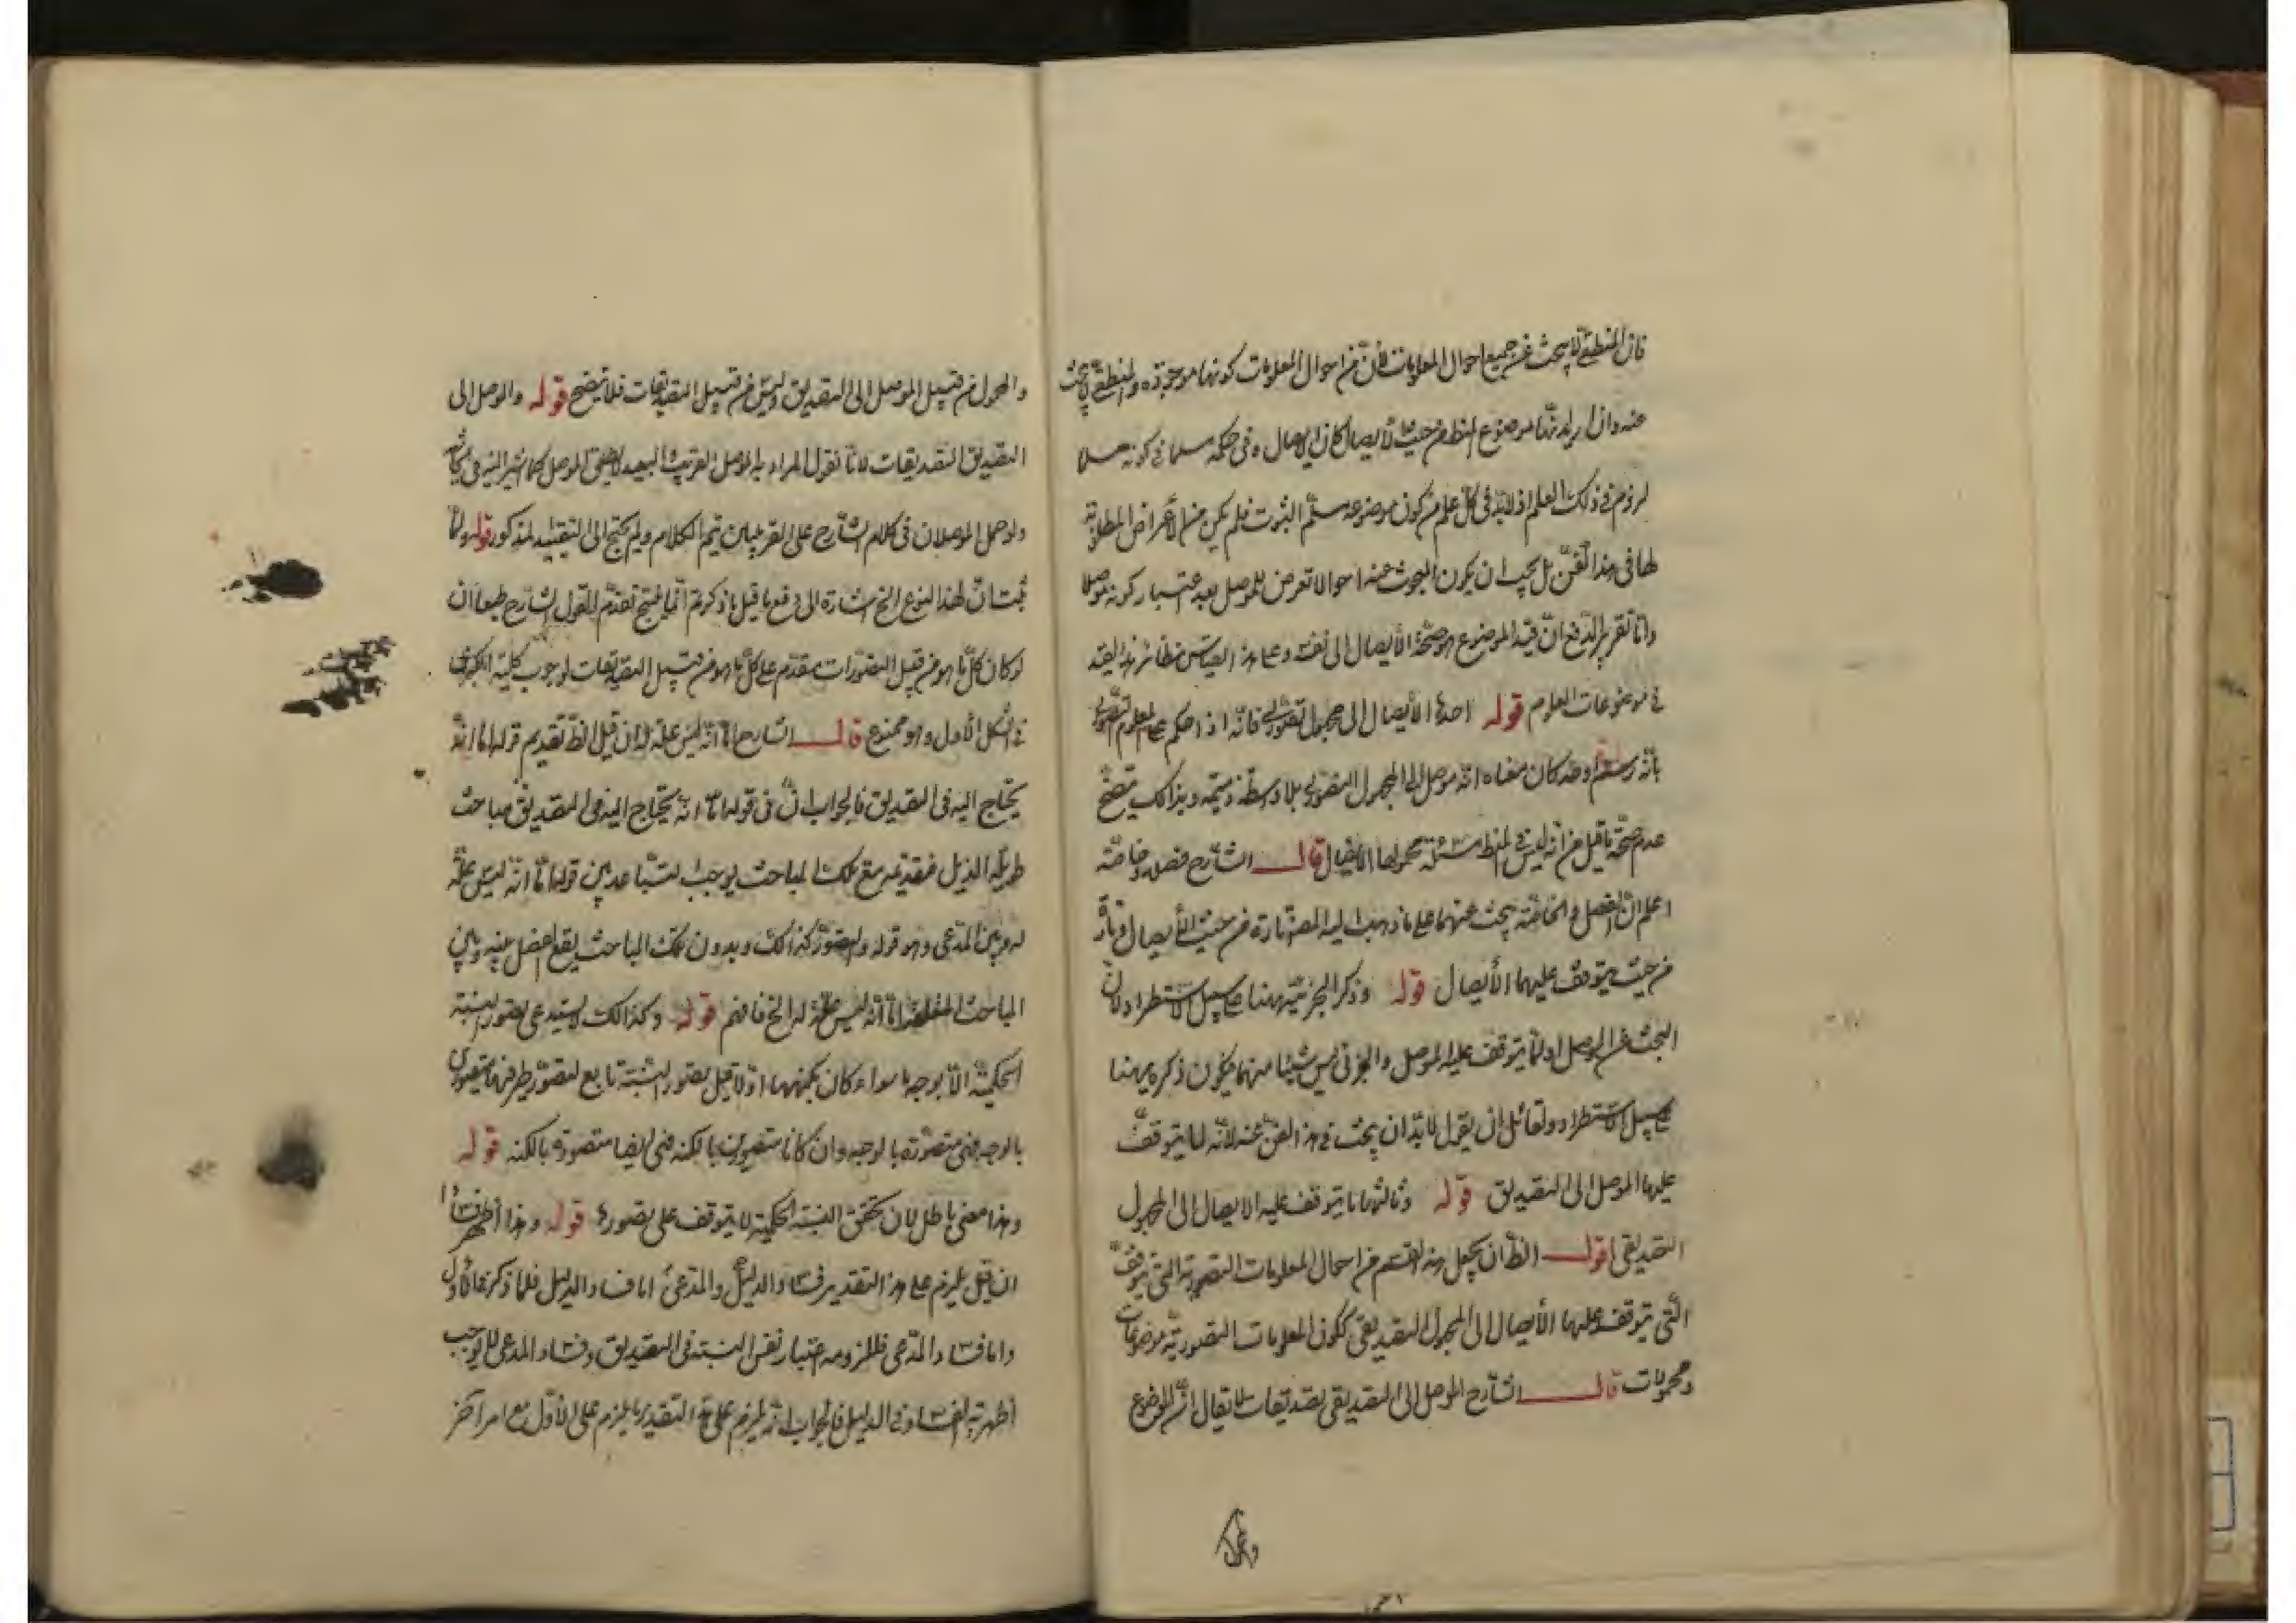 فان المنطقي لا يبحث عن جميع احوال المعلومات فان من احوال المعلومات كونها موجودة والمنطقي لا يبحث
عنه وان اريد انها موضوع المنطق من حيث الايصال كان الايصال وفي حكمه مسلما في كونه مسلما
في ذلك العلم اذ لا بد في كل علم من كون موضوعه مسلم الثبوت فلم يكن من الأعراض المطلوبة
لها في هذا الفن بل يجب ان يكون المبحوث عنه احوالا تعرض للموصل بعد اعتبار كونه موصلا
واما تقرير الدفع ان قيد الموضوع هو صحة الأيصال الى نفسه وعلى هذا القياس نظائر هذا القيد
في موضوعات العلوم قوله احدها الأيصال الى مجهول تصوري فانه اذا حكم على المعلوم التصوري
بانه رسم او حد كان معناه انه موصل الى المجهول التصوري بلا واسطة ضميمة وبذالك يتضح
عدم صحة ما قيل من انه ليس في المنطق مسئلة محمولها الايصال قال الشارح فصله وخاصة
اعلم ان الفصل والخاصة يبحث عنهما على ما ذهب اليه المص تارة من حيث الأيصال وتارة
من حيث يتوقف عليهما الأيصال قوله وذكر الجزئية ههنا على سبيل الاستطراد لان
البحث عن الموصل او لما يتوقف عليه الموصل والجزئي ليس شيئا منهما فيكون ذكره ههنا
على سبيل الاستطراد ولقائل ان يقول لا بد ان يبحث في هذا الفن عنه لانه لما يتوقف
عليها الموصل الى التصديق قوله وثالثها ما يتوقف عليه الايصال الى المجهول
التصديقي اقول الظ ان يجعل هذا القسم من احوال المعلومات التصورية التي يتوقف
التي يتوقف عليها الأيصال الى المجهول التصديقي ككون المعلومات التصورية موضوعات
ومحمولات قال الشارح الموصل الى التصديقي تصديقات لا يقال ان الموضوع
والمحمول من قبيل الموصل الى التصديق وليس من قبيل التصديقات فلا يتضح قوله والموصل الى
التصديق التصديقات لانا نقول المراد به الموصل القريب والبعيد لا مطلق الموصل كما اشير اليه في
ولو حمل الموصلان في كلام الشارح على القريبين يتم الكلام ولم يحتج الى التقييد المذكور قوله ولما
ثبت ان لهذا النوع الخ اشارة الى دفع ما قيل ما ذكرتم انما ينتج تقدم القول الشارح طبعا ان
لو كان كل ما هو من قبيل التصورات مقدم على كل ما هو من قبيل التصديقات لوجوب كلية الكبرى
في الشكل الأول وهو ممنوع قال الشارح اما انه ليس علة له ان قيل الظ تقديم قوله اما انه
يحتاج اليه في التصديق فالجواب ان في قوله اما انه يحتاج اليه في التصديق مباحث
طويلة الذيل فتقديمه مع تلك المباحث يوجب التباعد بين قوله اما انه ليس علة
له وبين المدعى وهو قوله والتصور كذالك وبدون تلك المباحث يقع الفصل بينه وبين
المباحث المتعلقة اما انه ليس علة له الخ فافهم قوله وكذالك لا يستدعي تصور النسبة
الحكمية الا بوجه ما سواء كان بكنهها اولا قيل تصور النسبة تابع لتصور طرفيها متصورين
بالوجه فهي متصورة بالوجه وان كانا متصورين بالكنه فهي ايضا متصورة بالكنه قوله
وهذا معنى باطل لان تحقق النسبة الحكمية لا يتوقف على تصورها قوله وهذا أظهر فسادا
ان قيل يلزم على هذا التقدير فساد الدليل والمدعى اما فساد الدليل فلما ذكر في الأول
واما فساد المدعى فللزوم اعتبار نفس النسبة في التصديق وفساد المدعى لا يوجب
أظهرية الفساد في الدليل فالجواب انه يلزم على هذا التقدير ما يلزم على الأول مع امر آخر